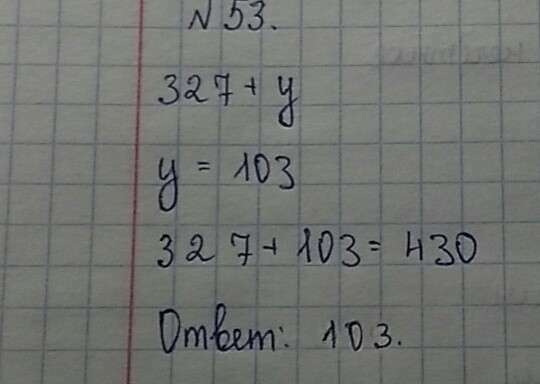 N 53.
327 + y
y = 103
327 + 103 = 430
Ответ: 103.